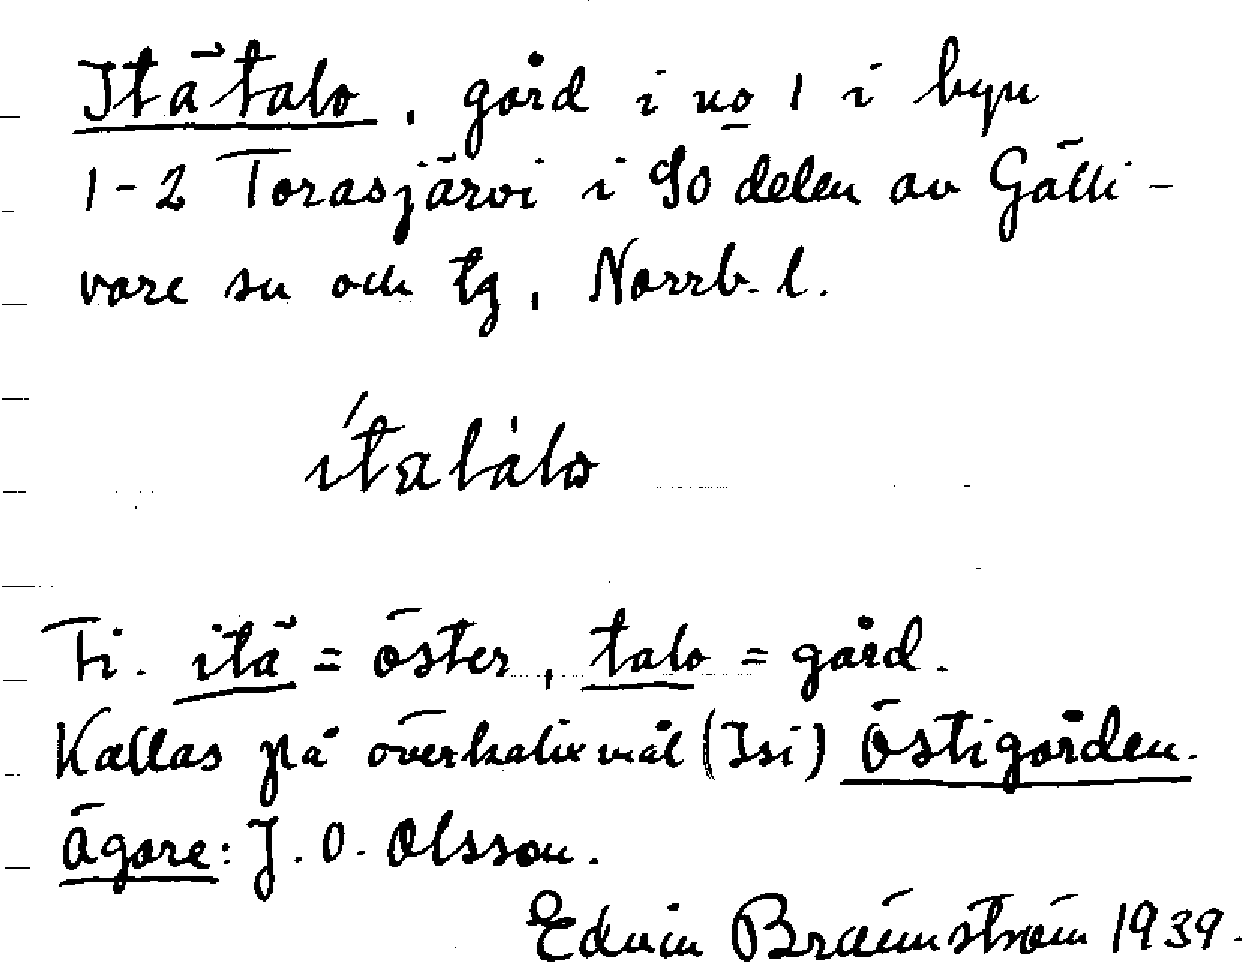 Itätalo, gård i no 1 i byn
1-2 Torasjärvi i SO delen av Gälli-
vare sn och tg, Norrb. l.
ítalàlo
Fi. itä = öster, talo = gård.
Kallas på överkalixmål (Isi) Östigården.
Ägare: J. O. Olsson.
Edvin Brännström 1939.